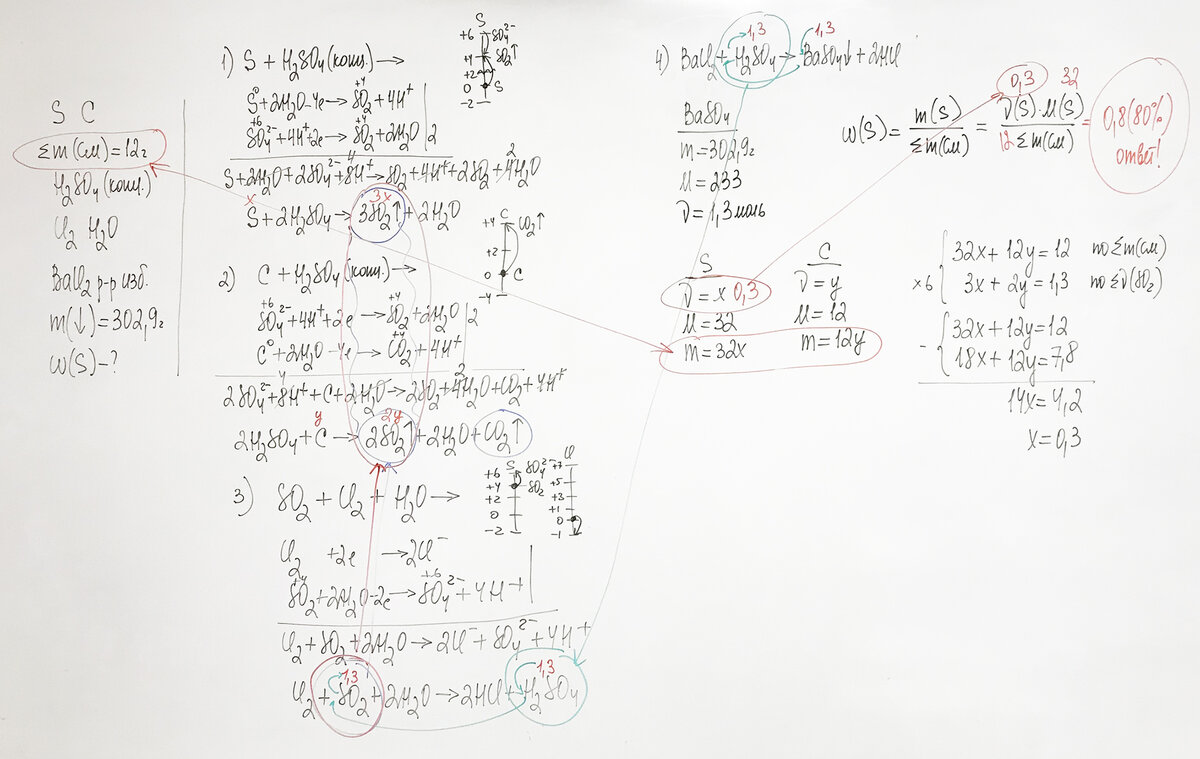 S C
Σm(см)=12г
H₂SO₄(конц.)
Cl₂ H₂O
BaCl₂ р-р изб.
m(↓)=302,9г
ω(S)-?
1) S + H₂SO₄(конц.) →
S⁰+2H₂O-4e→SO₂+4H⁺
SO₄²⁻+4H⁺+2e→SO₂+2H₂O | 2
+6 +4
S+2H₂O+2SO₄²⁻+8H⁺→SO₂+4H⁺+2SO₂+4H₂O
4 2
x 3x
S+2H₂SO₄→3SO₂↑+2H₂O
S
+6 SO₄²⁻
+4 SO₂↑
+2
0 S
-2
2) C + H₂SO₄(конц.) →
SO₄²⁻+4H⁺+2e→SO₂+2H₂O | 2
+6 +4
C⁰+2H₂O-4e→CO₂+4H⁺
+4
2SO₄²⁻+8H⁺+C+2H₂O→2SO₂+4H₂O+CO₂+4H⁺
4 2
y 2y
2H₂SO₄+C→2SO₂↑+2H₂O+CO₂↑
C
+4 CO₂↑
+2
0 C
-4
3) SO₂ + Cl₂ + H₂O →
Cl₂ +2e →2Cl⁻
SO₂+2H₂O-2e→SO₄²⁻+4H⁺
+4 +6
Cl₂+SO₂+2H₂O→2Cl⁻+SO₄²⁻+4H⁺
1,3 1,3
Cl₂+SO₂+2H₂O→2HCl+H₂SO₄
S
+6 SO₄²⁻
+4 SO₂
+2
0
-2
Cl
+7
+5
+3
+1
0
-1
4) BaCl₂+H₂SO₄→BaSO₄↓+2HCl
1,3 1,3
BaSO₄
m=302,9г
M=233
ν=1,3моль
S C
ν=x 0,3 ν=y
M=32 M=12
m=32x m=12y
0,3 32
ω(S)= m(S)/Σm(см) = ν(S)·M(S)/12 Σm(см) = 0,8(80%)
ответ!
32x+12y=12 по Σm(см)
×6 3x+2y=1,3 по Σν(SO₂)
- 32x+12y=12
18x+12y=7,8
14x=4,2
x=0,3